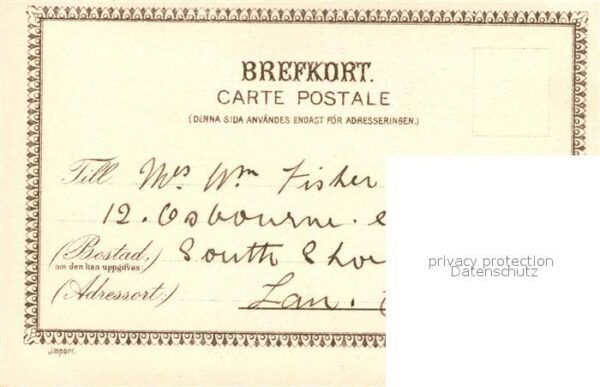 BREFKORT.
CARTE POSTALE
(DENNA SIDA ANVÄNDES ENDAST FÖR ADRESSERINGEN.)
Till Mrs Wm Fisher
12. Osbourne.
(Bostad, South Sho
om den kan uppgifvas.)
(Adressort.) Lan.
Import.
privacy protection
Datenschutz